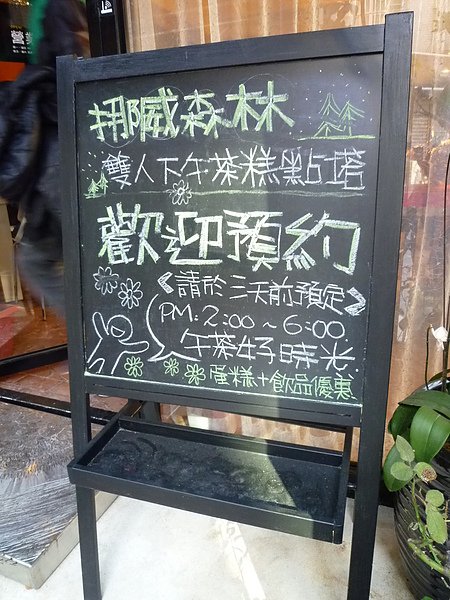 挪威森林
雙人下午茶糕點塔
歡迎預約
《請於三天前預定》
PM:2:00~6:00
午茶好時光
蛋糕+飲品優惠
營